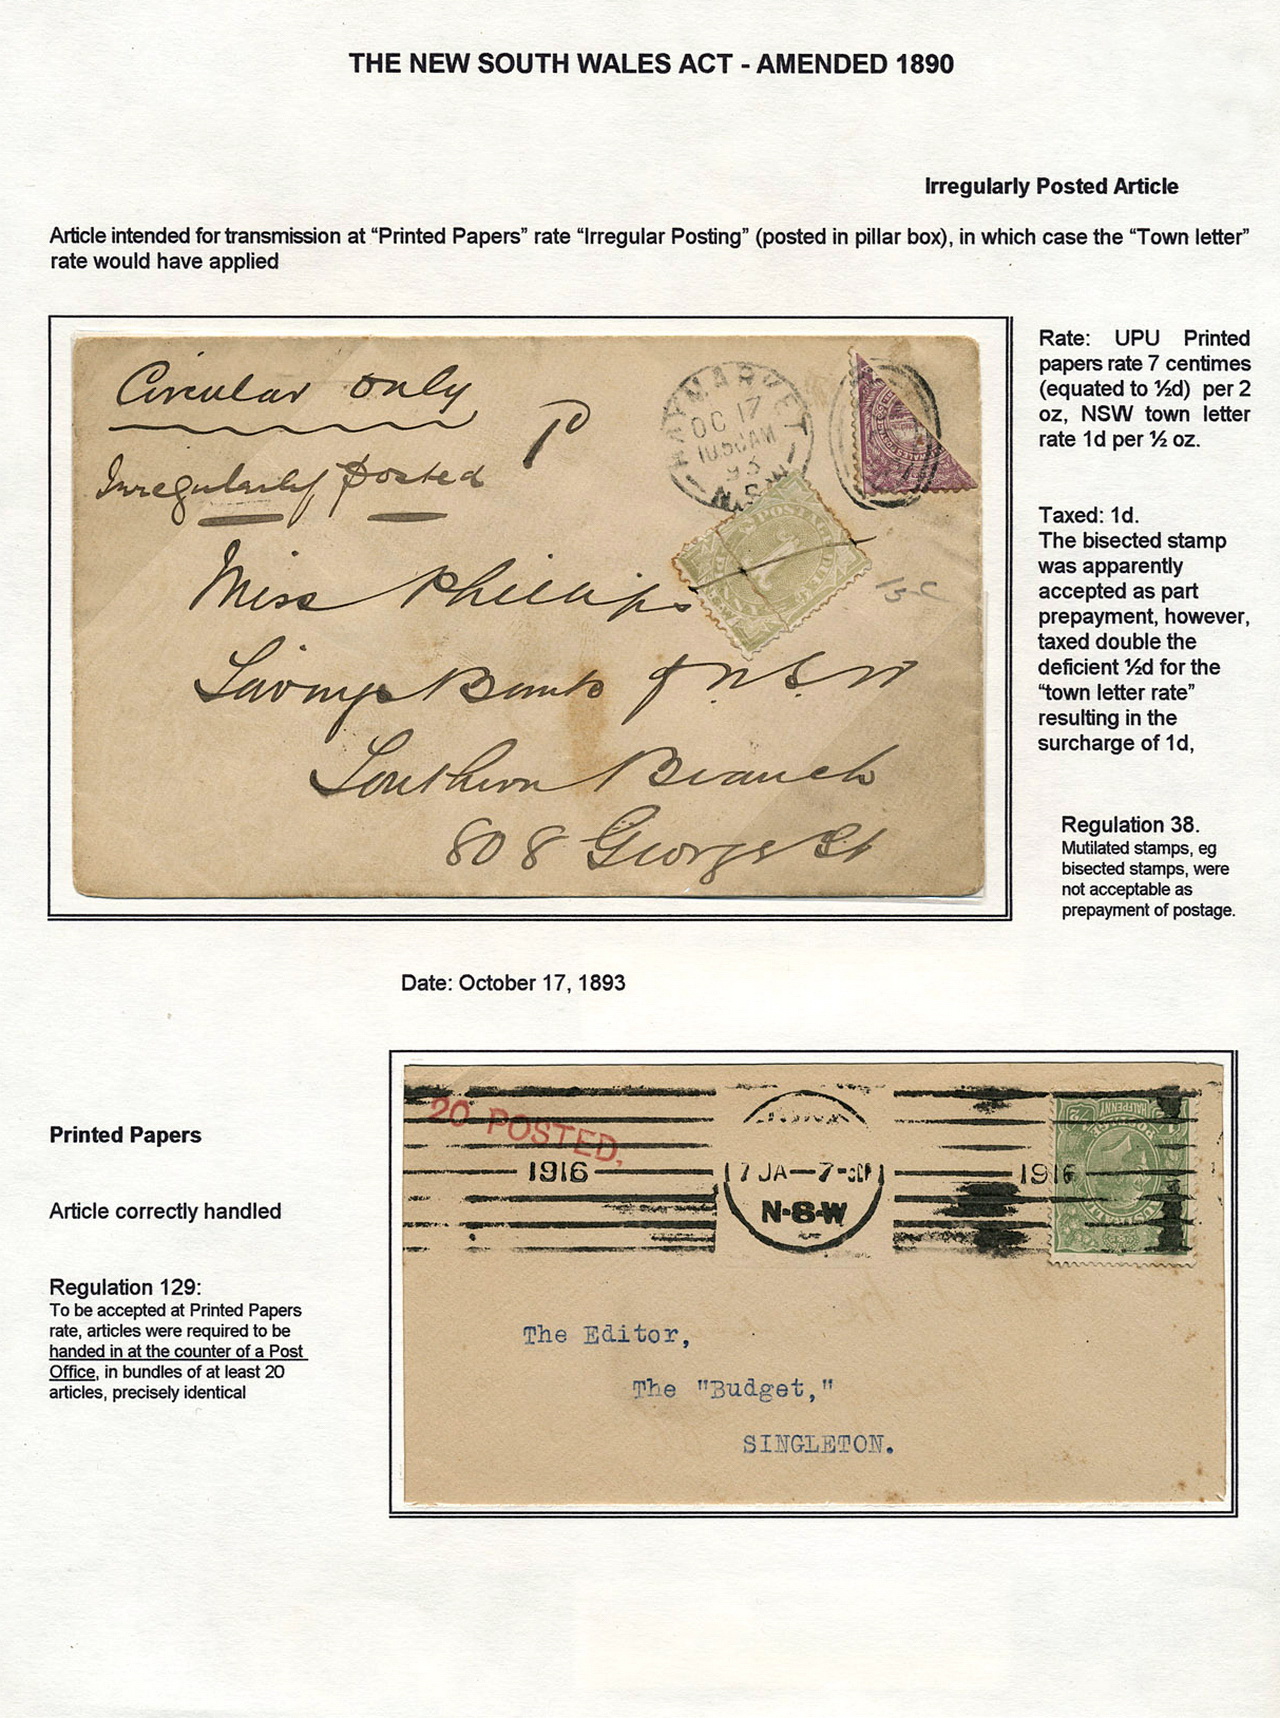 THE NEW SOUTH WALES ACT - AMENDED 1890
Irregularly Posted Article
Article intended for transmission at “Printed Papers” rate “Irregular Posting” (posted in pillar box), in which case the “Town letter”
rate would have applied
Circular only
Irregularly posted
HAYMARKET
OC 17
10.50AM
93
N.S.W
POSTAGE DUE
Miss Phillips
Savings Bank of N.S.W
Southern Branch
808 George St
Rate: UPU Printed
papers rate 7 centimes
(equated to ½d) per 2
oz, NSW town letter
rate 1d per ½ oz.
Taxed: 1d.
The bisected stamp
was apparently
accepted as part
prepayment, however,
taxed double the
deficient ½d for the
“town letter rate”
resulting in the
surcharge of 1d,
Regulation 38.
Mutilated stamps, eg
bisected stamps, were
not acceptable as
prepayment of postage.
Date: October 17, 1893
Printed Papers
Article correctly handled
Regulation 129:
To be accepted at Printed Papers
rate, articles were required to be
handed in at the counter of a Post
Office, in bundles of at least 20
articles, precisely identical
20 POSTED.
1916
17 JA—7-
N·S·W
1916
HALFPENNY
The Editor,
The "Budget,"
SINGLETON.